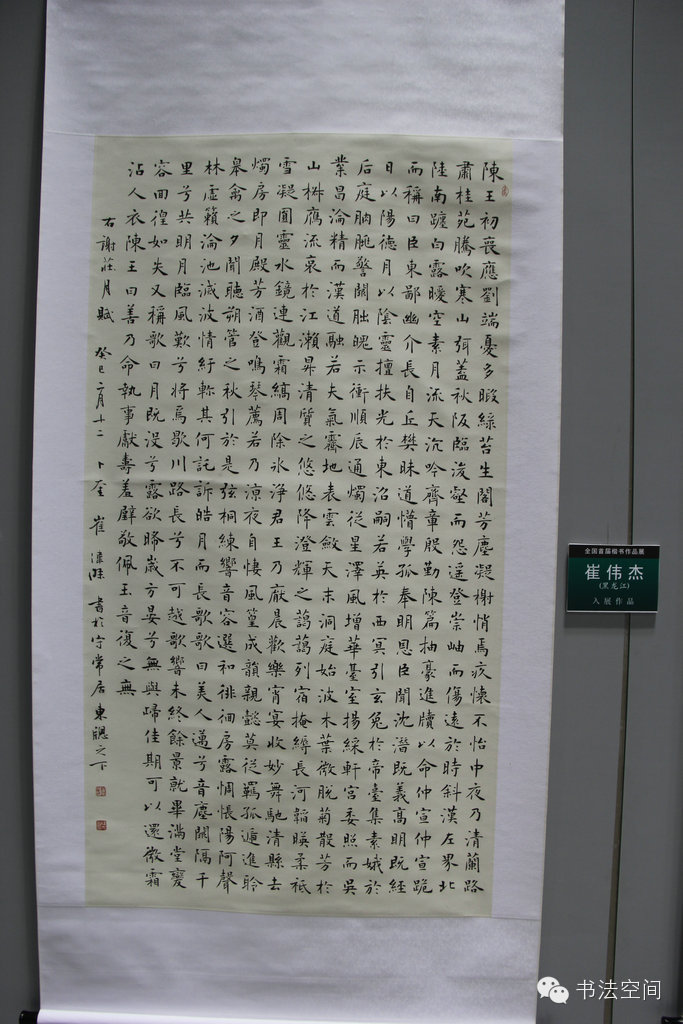 陳王初喪應劉端憂多暇綠苔生閣芳塵凝榭悄焉疚懷不怡中夜乃清蘭路
肅桂苑騰吹寒山弭蓋秋阪臨浚壑而怨遙登崇岫而傷遠於時斜漢左界北
陸南躔白露曖空素月流天沉吟齊章殷勤陳篇抽豪進牘以命仲宣仲宣跪
而稱曰臣東鄙幽介長自丘樊昧道懵學孤奉明恩臣聞沈潛既義高明既經
日以陽德月以陰靈擅扶光於東沼嗣若英於西冥引玄兔於帝臺集素娥於
后庭朒朓警闕朏魄示衝順辰通燭從星澤風增華臺室揚綵軒宮委照而吳
業昌淪精而漢道融若夫氣霽地表雲斂天末洞庭始波木葉微脫菊散芳於
山椒鴈流哀於江瀨昇清質之悠悠降澄輝之藹藹列宿掩縟長河韜暎柔祇
雪凝圓靈水鏡連觀霜縞周除冰淨君王乃厭晨歡樂宵宴收妙舞馳清縣去
燭房即月殿芳酒登鳴琴薦若乃涼夜自悽風篁成韻親懿莫從羈孤遞進聆
皋禽之夕聞聽朔管之秋引於是弦桐練響音容選和徘徊房露惆悵陽阿聲
林虛籟淪池滅波情紆軫其何託訴皓月而長歌歌曰美人邁兮音塵闕隔千
里兮共明月臨風歎兮將焉歇川路長兮不可越歌響未終餘景就畢滿堂變
容回徨如失又稱歌曰月既沒兮露欲晞歲方晏兮無與歸佳期可以還微霜
沾人衣陳王曰善乃命執事獻壽羞璧敬佩玉音復之無
右謝莊月賦 癸巳六月十二 卜奎 崔 書於守常居東牕之下
全国首届楷书作品展
崔伟杰
(黑龙江)
入展作品
书法空间